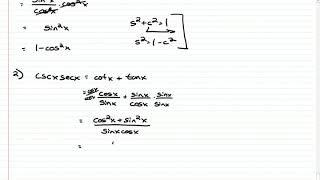 = sin²x/cos²x · cos²x
= sin²x
= 1-cos²x
s²+c²=1
s²=1-c²
2) cscx secx = cotx + tanx
= cosx/cosx cosx/sinx + sinx/cosx · sinx/sinx
= cos²x + sin²x / sinxcosx
=